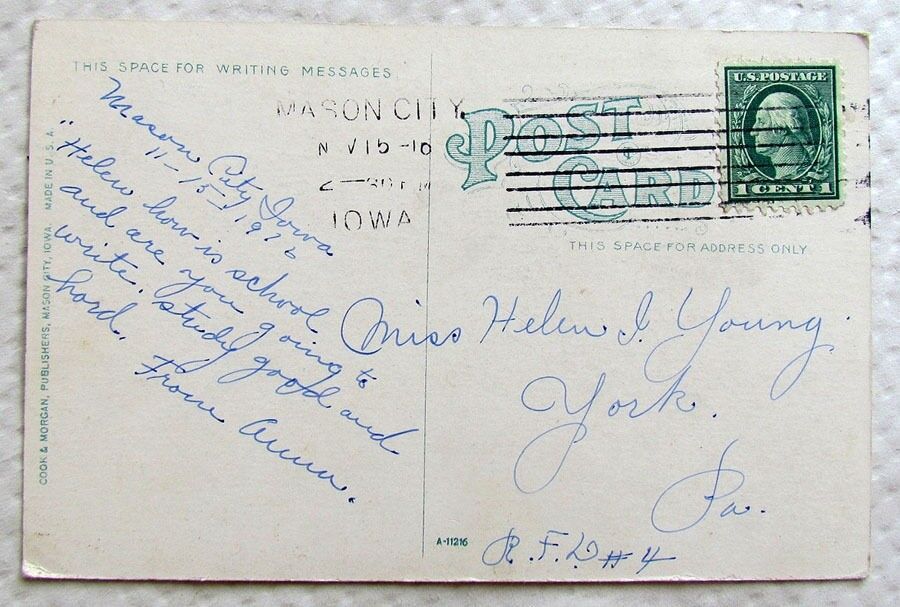 THIS SPACE FOR WRITING MESSAGES
Mason City Iowa
"Helen how is school
and are you going to
write. study good and
hard.
From Anna.
COOK & MORGAN, PUBLISHERS, MASON CITY, IOWA MADE IN U.S.A.
MASON CITY
IOWA
POST
CARD
U.S. POSTAGE
1 CENT 1
THIS SPACE FOR ADDRESS ONLY
Miss Helen I. Young.
York.
Pa.
R.F.D #4
A-11216